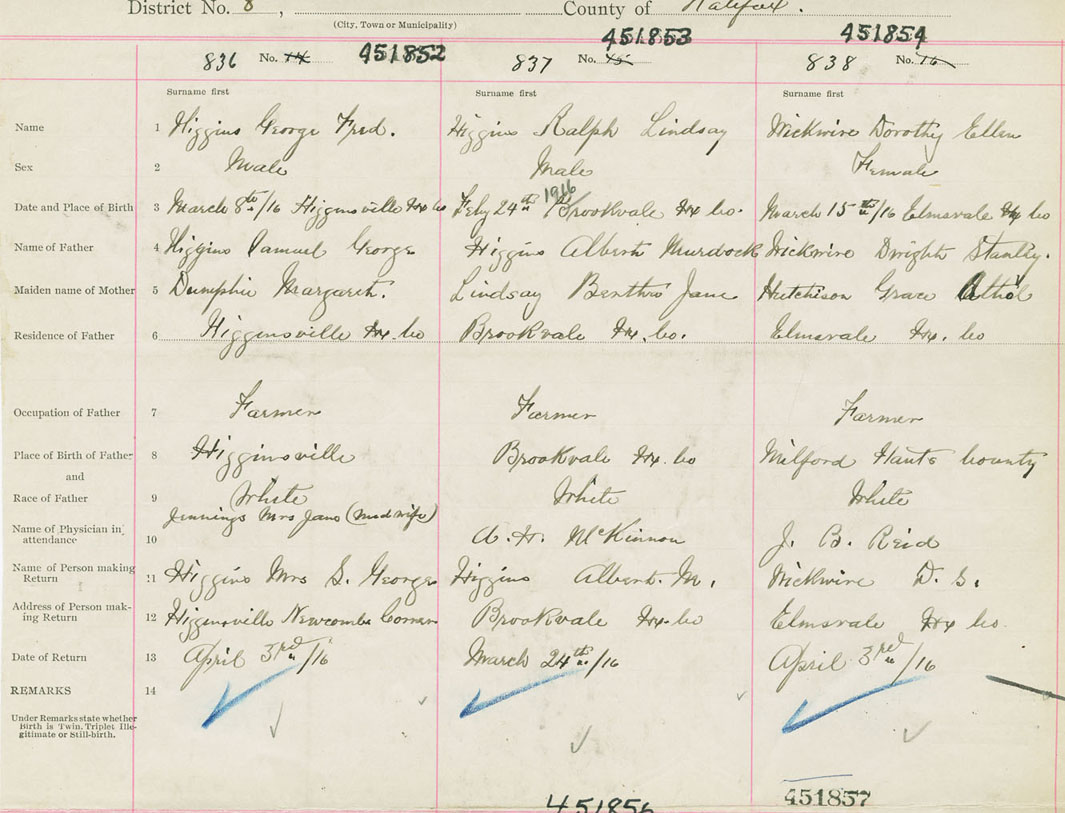 District No. 8, County of Halifax.
(City, Town or Municipality)
836 No. 14 451852 837 No. 15 451853 838 No. 16 451854
Surname first Surname first Surname first
Name 1 Higgins George Fred. Higgins Ralph Lindsay Wickwire Dorothy Ellen
Sex 2 Male Male Female
1916
Date and Place of Birth 3 March 8th/16 Higginsville Hx Co Feby 24th Brookvale Hx Co. March 15th/16 Elmsvale Hx Co
Name of Father 4 Higgins Samuel George Higgins Albert Murdock Wickwire Dwight Stanley.
Maiden name of Mother 5 Dumphie Margaret. Lindsay Jane Hutchison Grace
Residence of Father 6 Higginsville Hx. Co Brookvale Hx. Co. Elmsvale Hx. Co
Occupation of Father 7 Farmer Farmer Farmer
Place of Birth of Father 8 Higginsville Brookvale Hx. Co Milford Hants County
and
Race of Father 9 White White White
Jennings Mrs Jane (Midwife)
Name of Physician in
attendance 10 A. H. McKinnon J. B. Reid
Name of Person making
Return 11 Higgins Mrs S. George Higgins Albert. M. Wickwire D. S.
Address of Person mak-
ing Return 12 Higginsville Newcombe Corner Brookvale Hx. Co Elmsvale Hx Co.
Date of Return 13 April 3rd/16 March 24th/16 April 3rd/16
REMARKS 14
Under Remarks state whether
Birth is Twin, Triplet Ille-
gitimate or Still-birth.
451856 451857